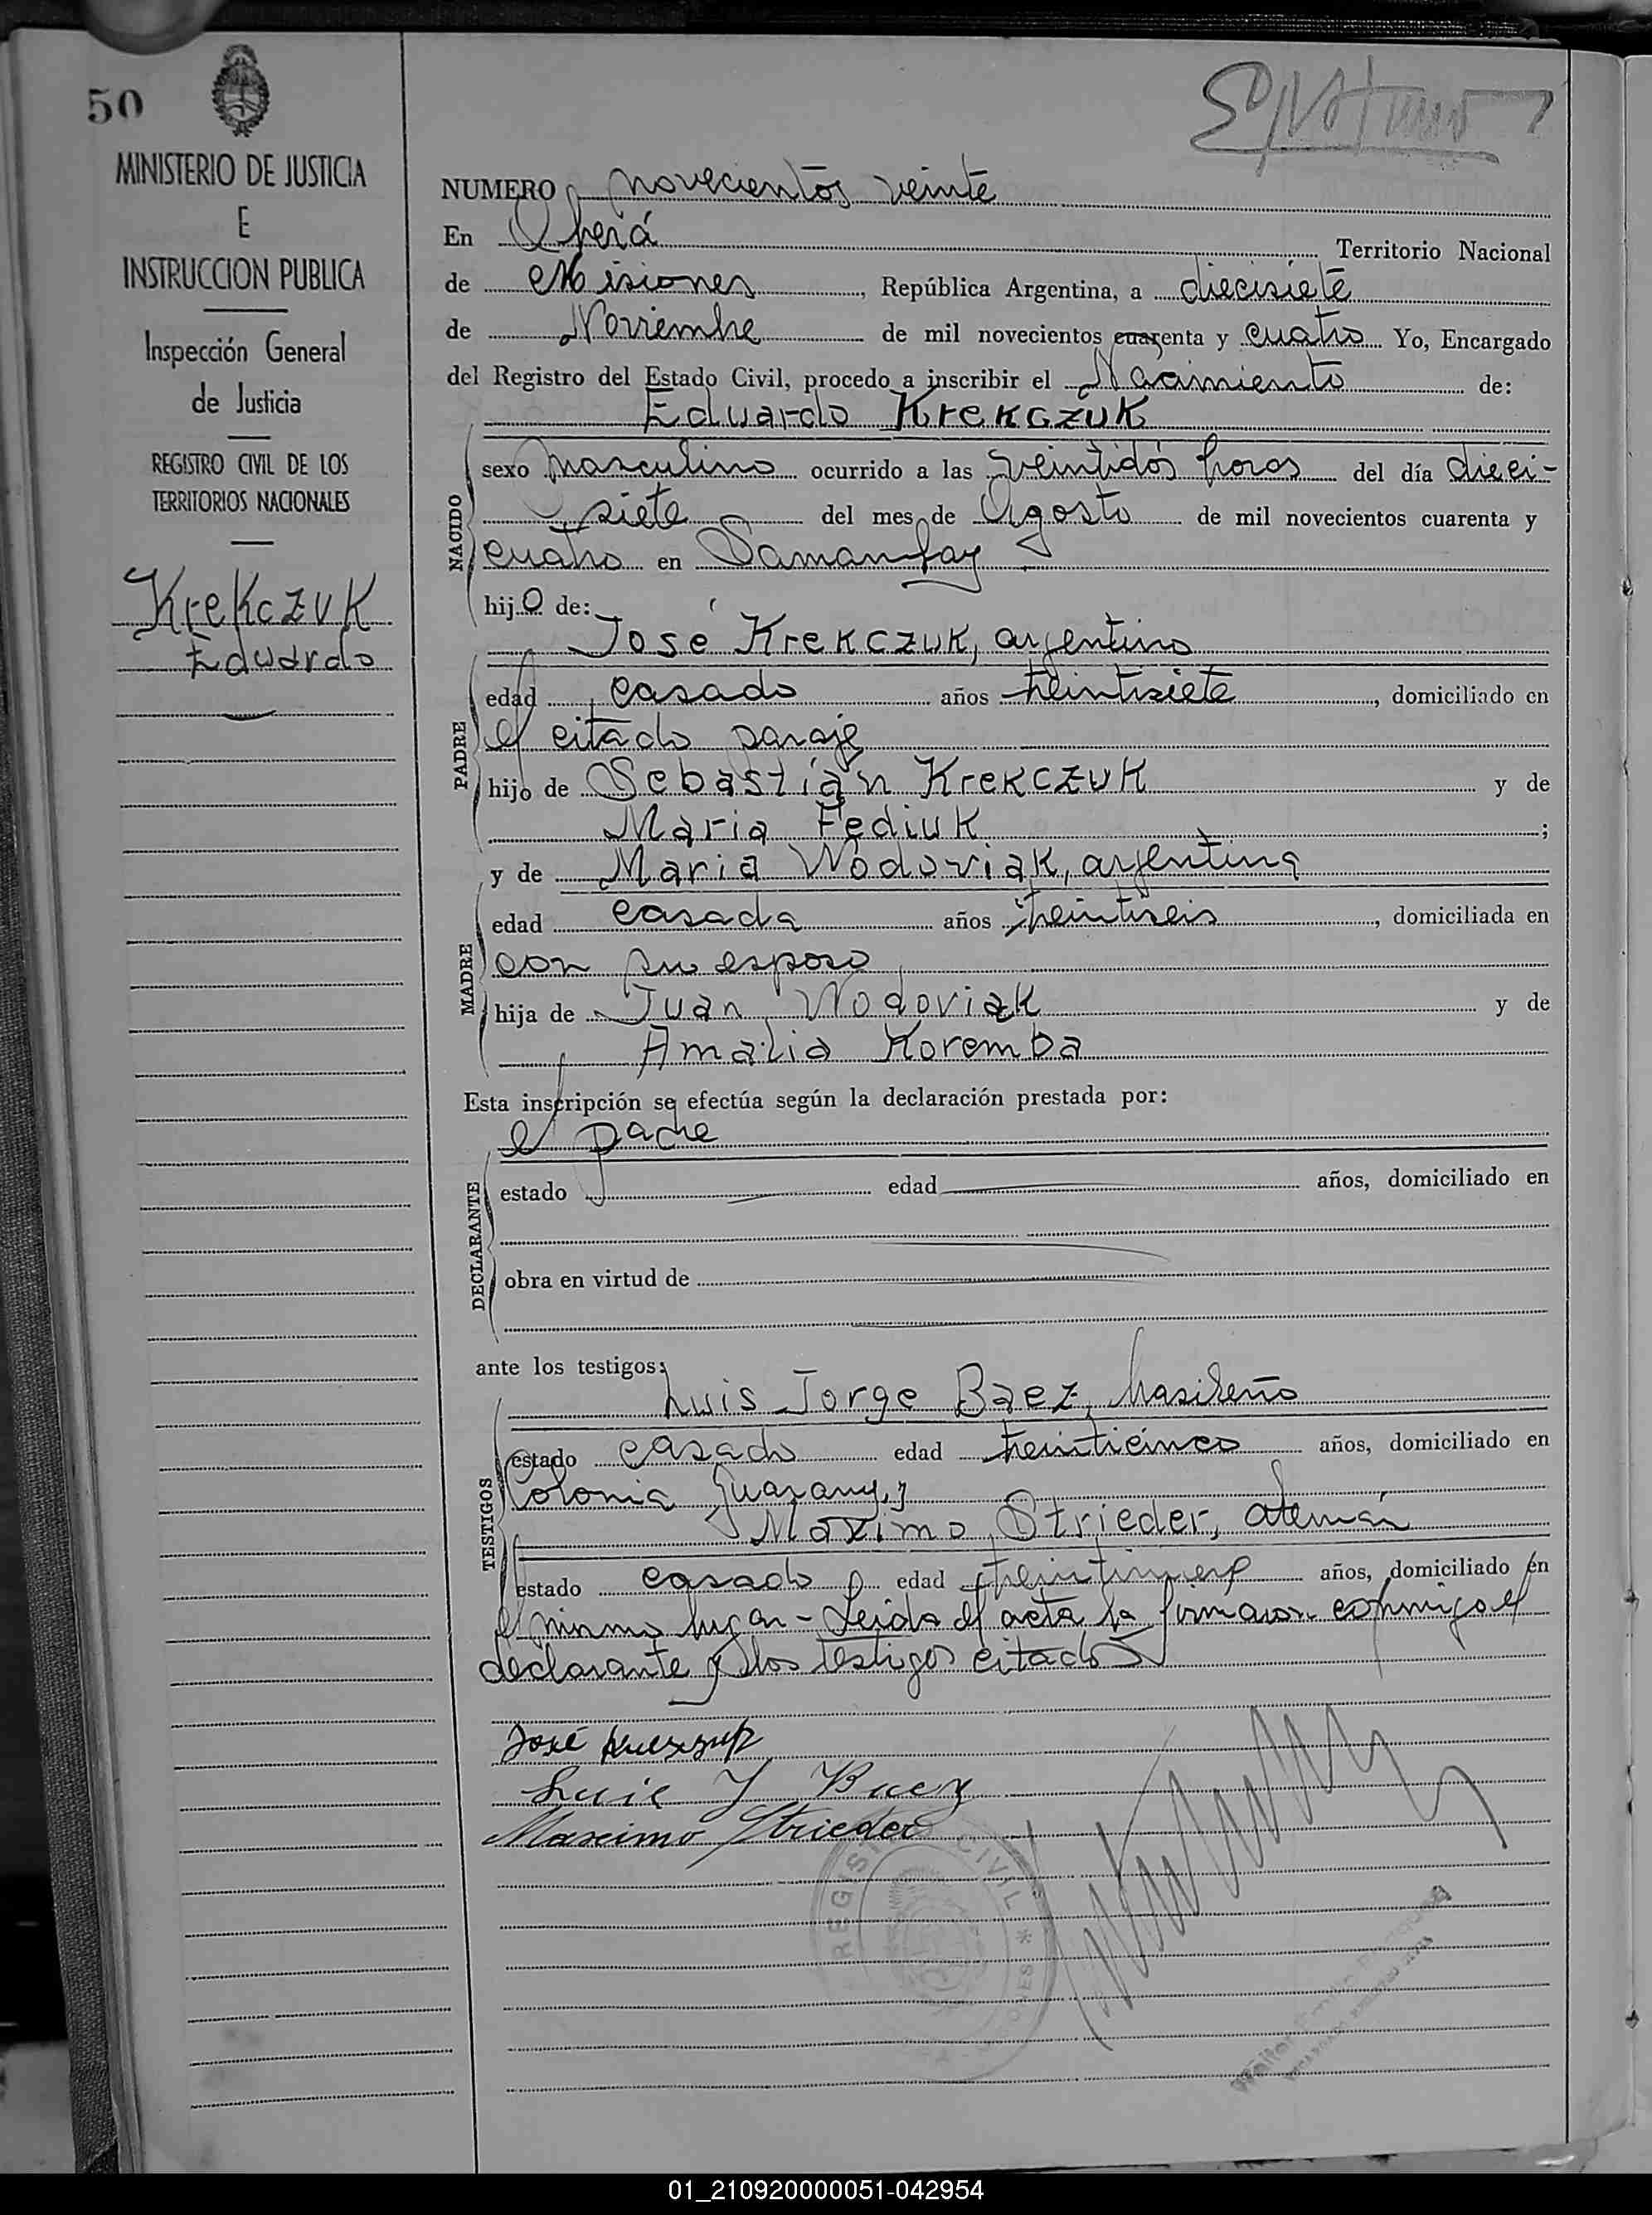 50
MINISTERIO DE JUSTICIA
E
INSTRUCCION PUBLICA
Inspección General
de Justicia
REGISTRO CIVIL DE LOS
TERRITORIOS NACIONALES
Krekczuk
Eduardo
NUMERO novecientos veinte
En Oberá Territorio Nacional
de Misiones, República Argentina, a diecisiete
de Noviembre de mil novecientos cuarenta y cuatro Yo, Encargado
del Registro del Estado Civil, procedo a inscribir el Nacimiento de:
Eduardo Krekczuk
NACIDO
sexo masculino ocurrido a las veintidós horas del día dieci-
siete del mes de Agosto de mil novecientos cuarenta y
cuatro en Samambay
hijo de:
José Krekczuk, argentino
PADRE
edad casado años treintisiete, domiciliado en
el citado paraje
hijo de Sebastián Krekczuk y de
Maria Fediuk;
y de Maria Wodoviak, argentina
MADRE
edad casada años treintiseis, domiciliada en
con su esposo
hija de Juan Wodoviak y de
Amalia Koremba
Esta inscripción se efectúa según la declaración prestada por:
el padre
DECLARANTE
estado edad años, domiciliado en
obra en virtud de
ante los testigos:
Luis Jorge Baez, brasileño
TESTIGOS
estado casado edad treinticinco años, domiciliado en
Colonia Guarany, y
Maximo Strieder, alemán
estado casado edad años, domiciliado en
el mismo lugar - Leida el acta la firmaron conmigo el
declarante y los testigos citados
José
Luis J Baez
Maximo Strieder
REGIS CIVIL *
01_210920000051-042954